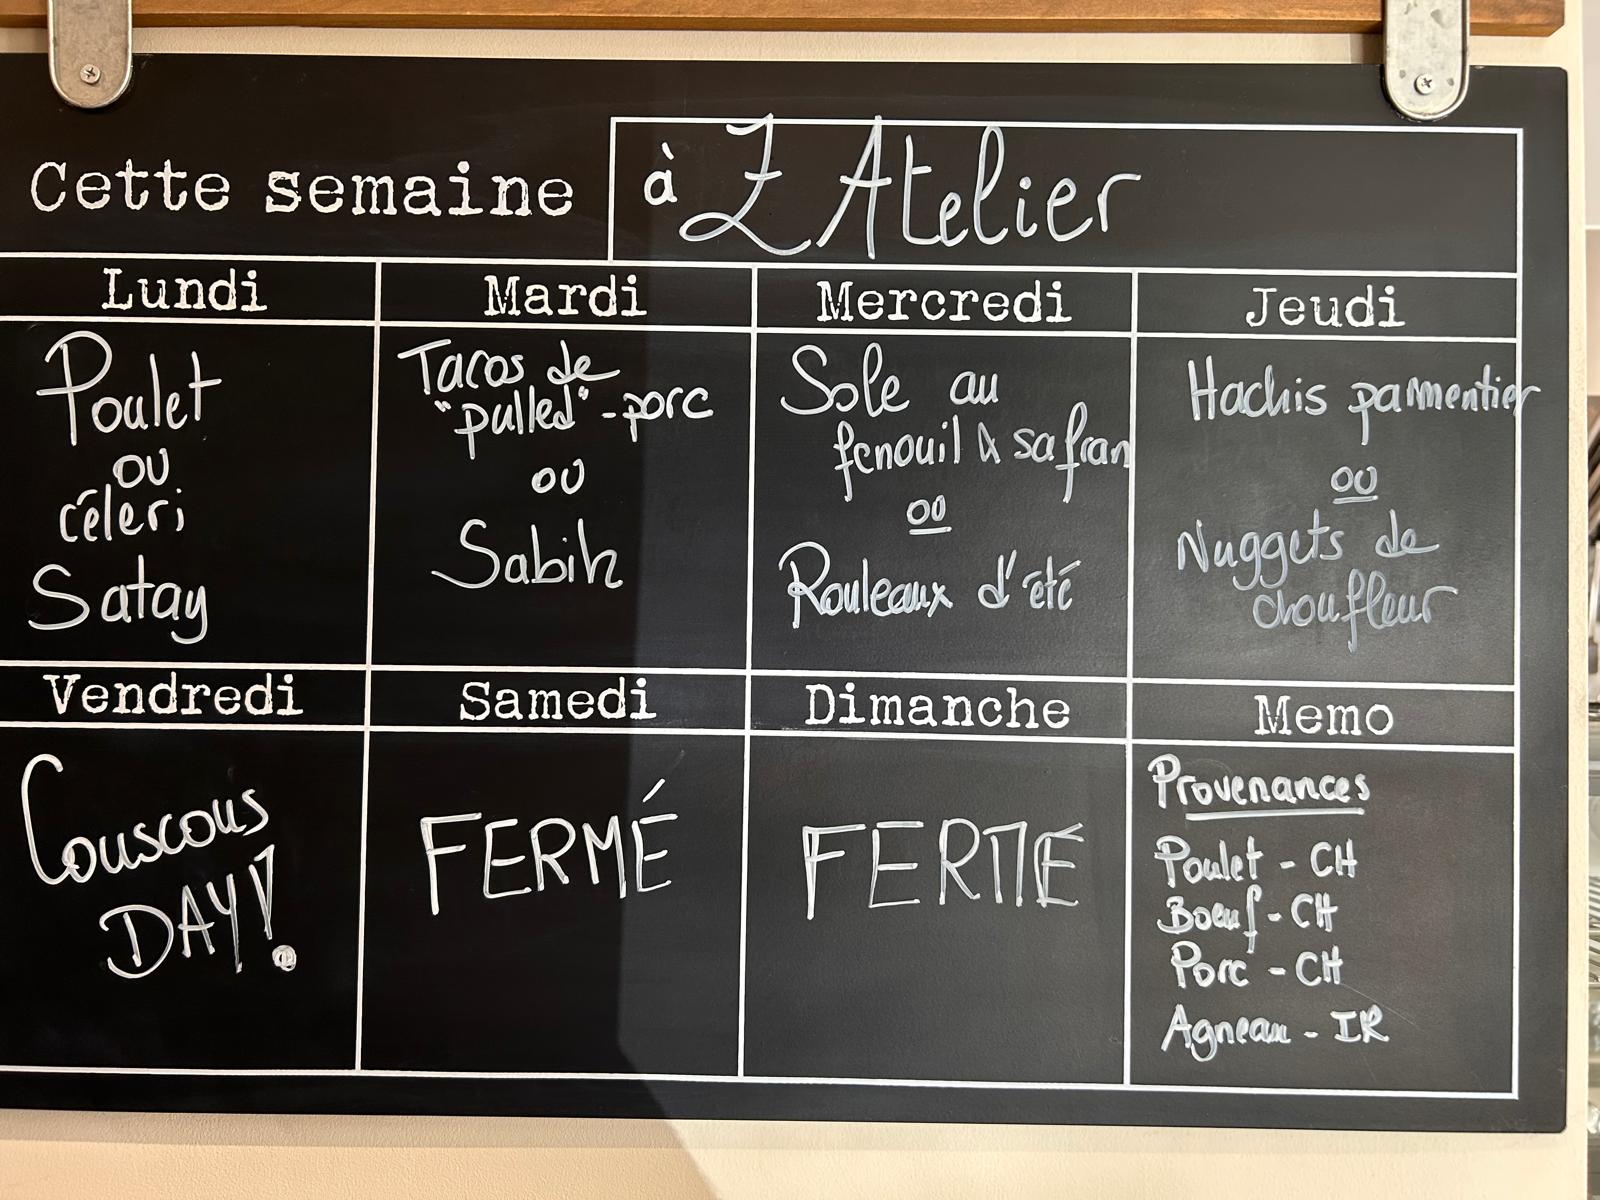 Cette semaine
à L'Atelier
Lundi
Poulet
ou
céleri
Satay
Mardi
Tacos de
"pulled"-porc
ou
Sabih
Mercredi
Sole au
fenouil & safran
ou
Rouleaux d'été
Jeudi
Hachis parmentier
ou
Nuggets de
choufleur
Vendredi
Couscous
DAY!
Samedi
FERMÉ
Dimanche
FERMÉ
Memo
Provenances
Poulet - CH
Boeuf - CH
Porc - CH
Agneau - IR